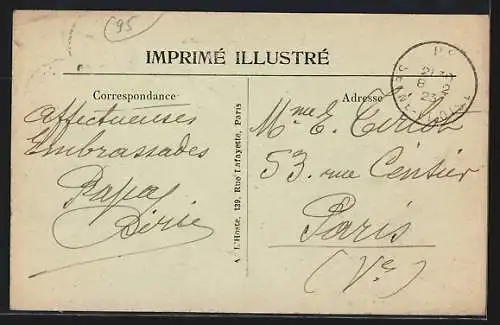 95
IMPRIMÉ ILLUSTRÉ
Correspondance
Affectueuses
Embrassades
Papa
A L'Hoste, 139, Rue Lafayette, Paris
Adresse
Mme E.
53. rue Censier
Paris
(Ve)